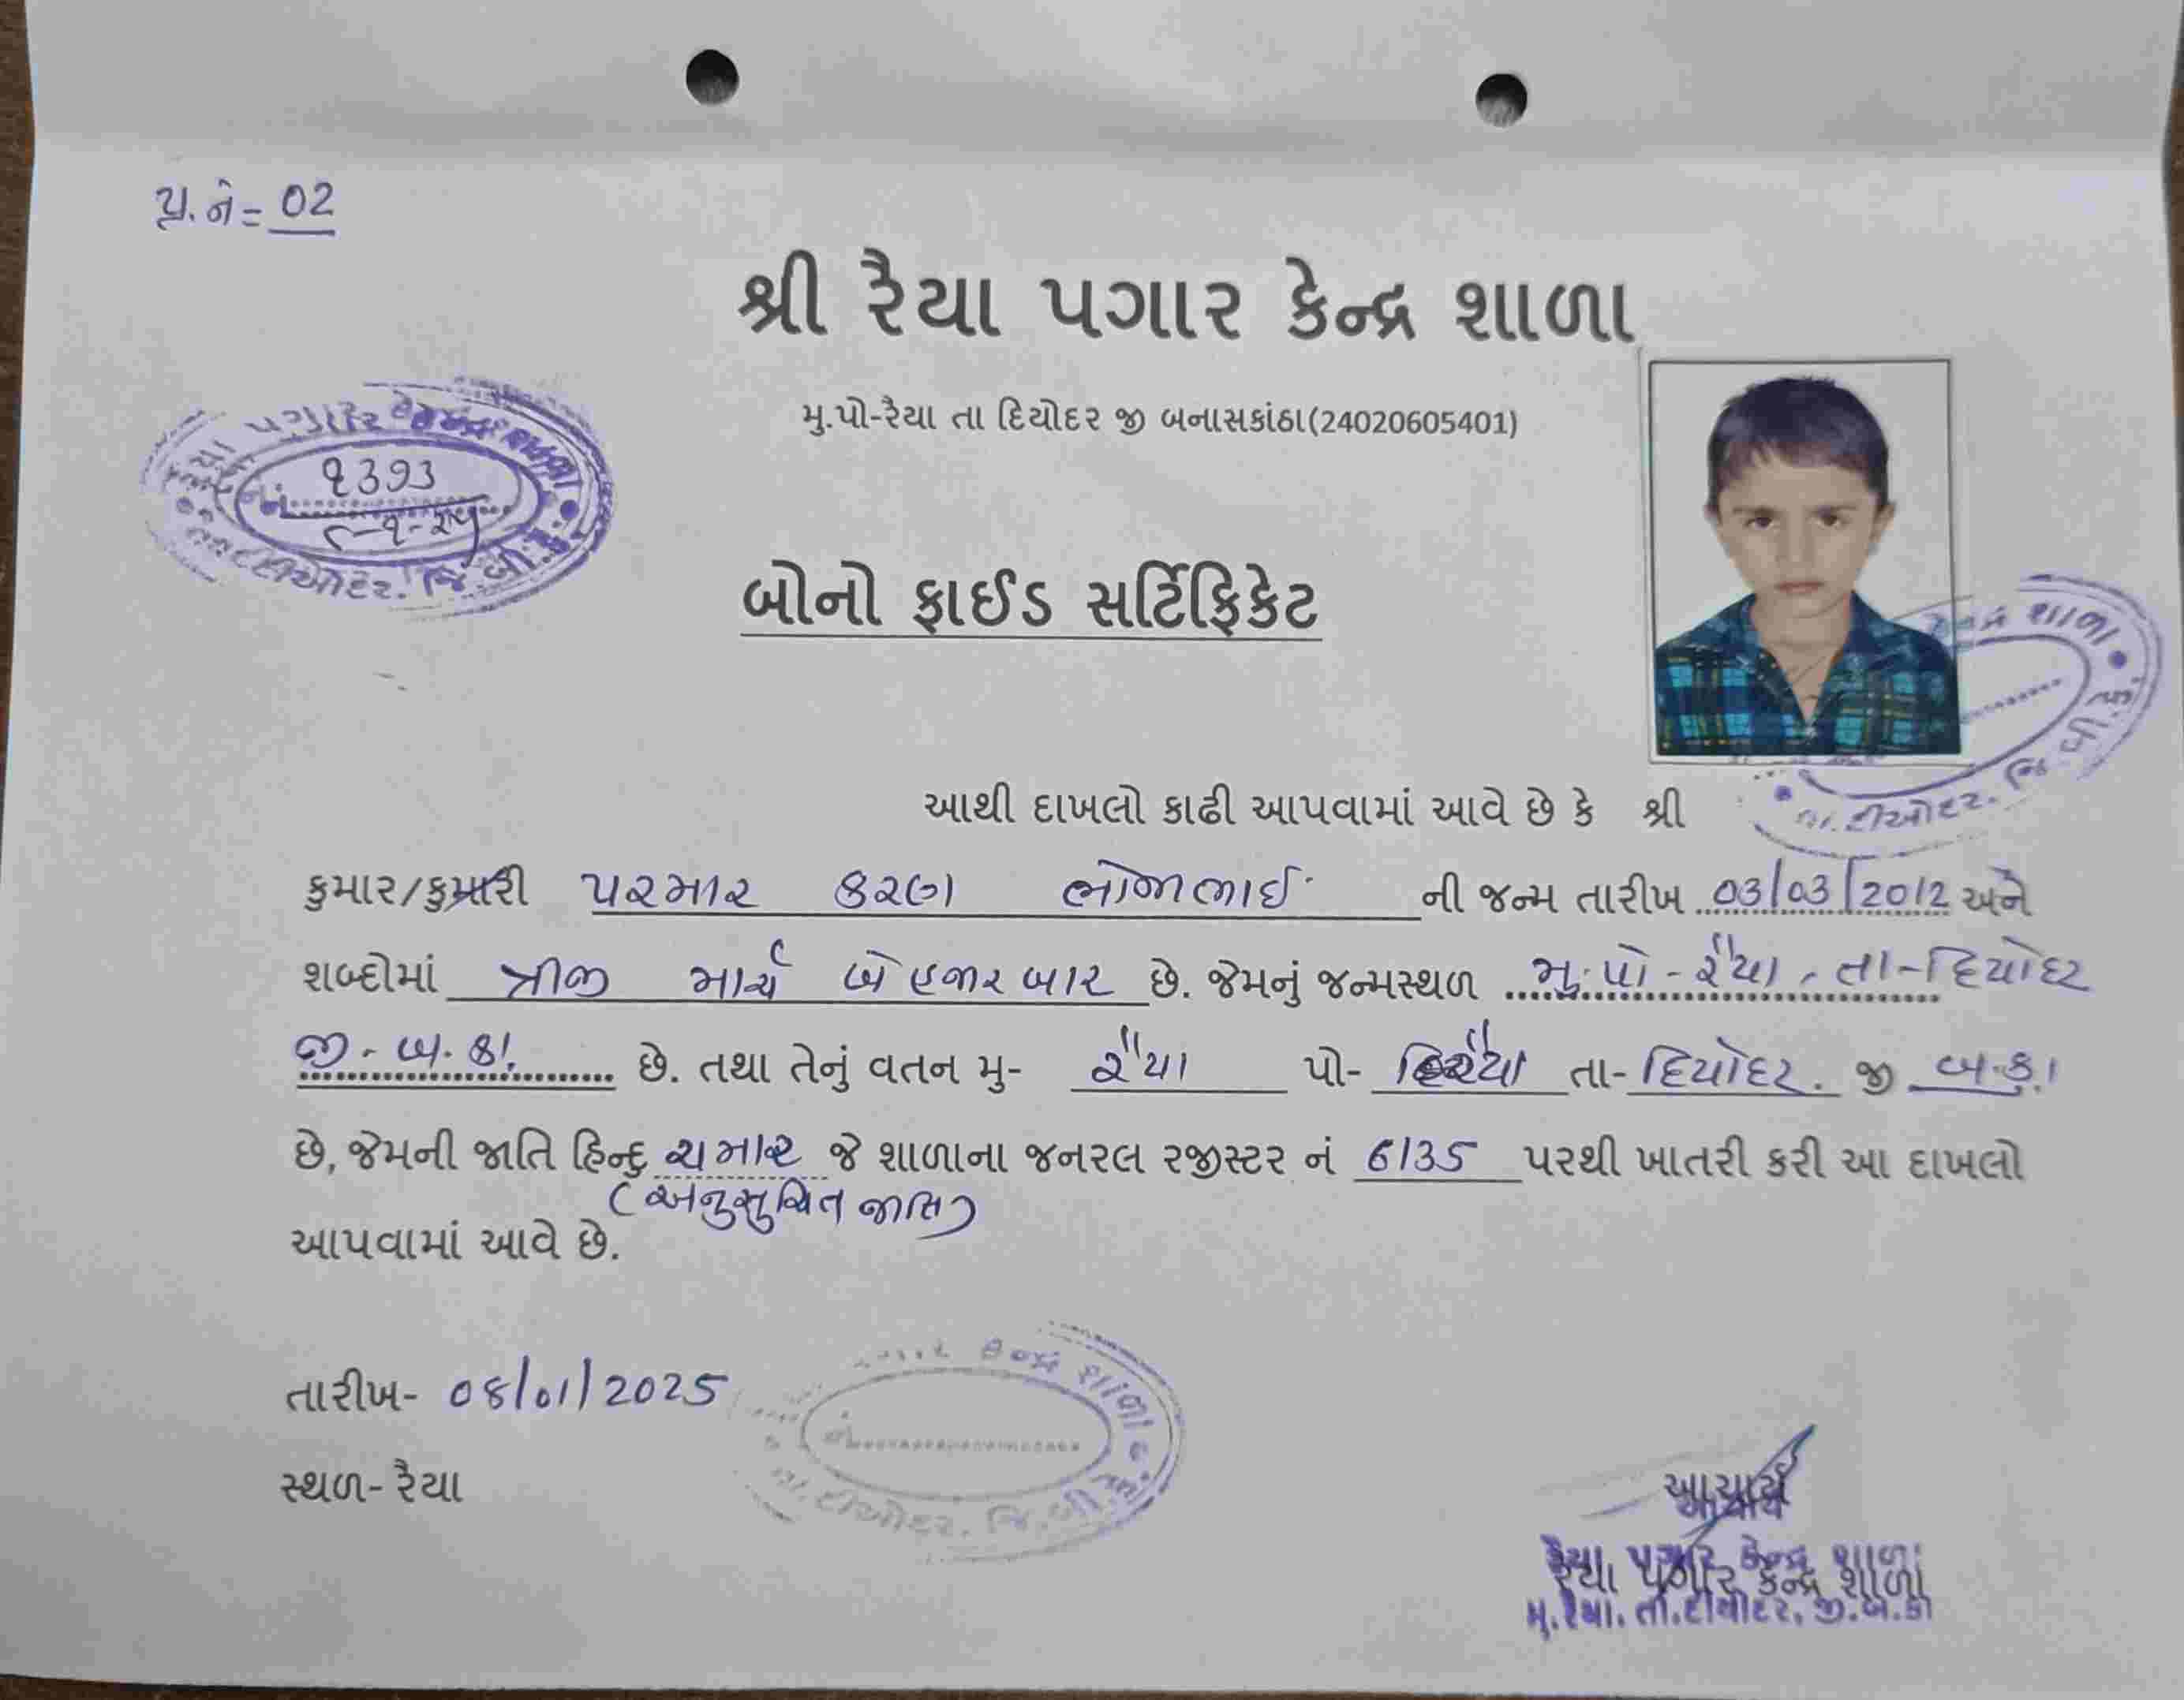 પ્ર. નં = 02
શ્રી રૈયા પગાર કેન્દ્ર શાળા
મુ.પો-રૈયા તા દિયોદર જી બનાસકાંઠા(24020605401)
રૈયા પગાર કેન્દ્ર શાળા
નં. ૧૩૧૩
તા. દીઓદર. જિ. બી. કે.
બોનો ફાઈડ સર્ટિફિકેટ
કેન્દ્ર શાળા
તા. દીઓદર. જિ. બી. કે.
આથી દાખલો કાઢી આપવામાં આવે છે કે શ્રી
કુમાર/કુમારી પરમાર કરણ ભોજાભાઈ ની જન્મ તારીખ 03/03/2012 અને
શબ્દોમાં ત્રીજી માર્ચ બે હજાર બાર છે. જેમનું જન્મસ્થળ મુ. પો - રૈયા, તા-દિયોદર
જી - બ. કાં. છે. તથા તેનું વતન મુ- રૈયા પો- રૈયા તા- દિયોદર. જી બ.કાં
છે, જેમની જાતિ હિન્દુ ચમાર જે શાળાના જનરલ રજીસ્ટર નં 6135 પરથી ખાતરી કરી આ દાખલો
(અનુસુચિત જાતિ)
આપવામાં આવે છે.
તારીખ- 08/01/2025
કેન્દ્ર શાળા
નં.
તા. દીઓદર. જિ. બી.
સ્થળ- રૈયા
આચાર્ય
રૈયા પગાર કેન્દ્ર શાળા
મુ.રૈયા. તા.દીયોદર, જી.બ.કાં